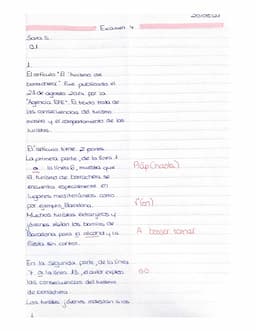 Examen 4
Sara S.
Q1
1.
El artículo "El Turismo de
borrachera" fue publicado el
21 de agosto 2024 por la
"Agencia EFE". El texto trata de
las consecuencias del turismo
masivo y el comportamiento de los
turistas.
El artículo tiene 2 partes.
La primera parte, de la línea 1
a la línea 6, muestra que
el turismo de borrachera se
encuentra especialmente en
lugares mediterráneos como
por ejemplo, Barcelona.
Muchos turistas extranjeros y
jóvenes visitan los barrios de
Barcelona para el alcohol y la
fiesta sin control.
En la segunda parte, de la línea
7 a la línea 15, el autor explica
las consecuencias del turismo
de borrachera.
Los turistas jóvenes molestan a los
Präp (hasta)
A
1